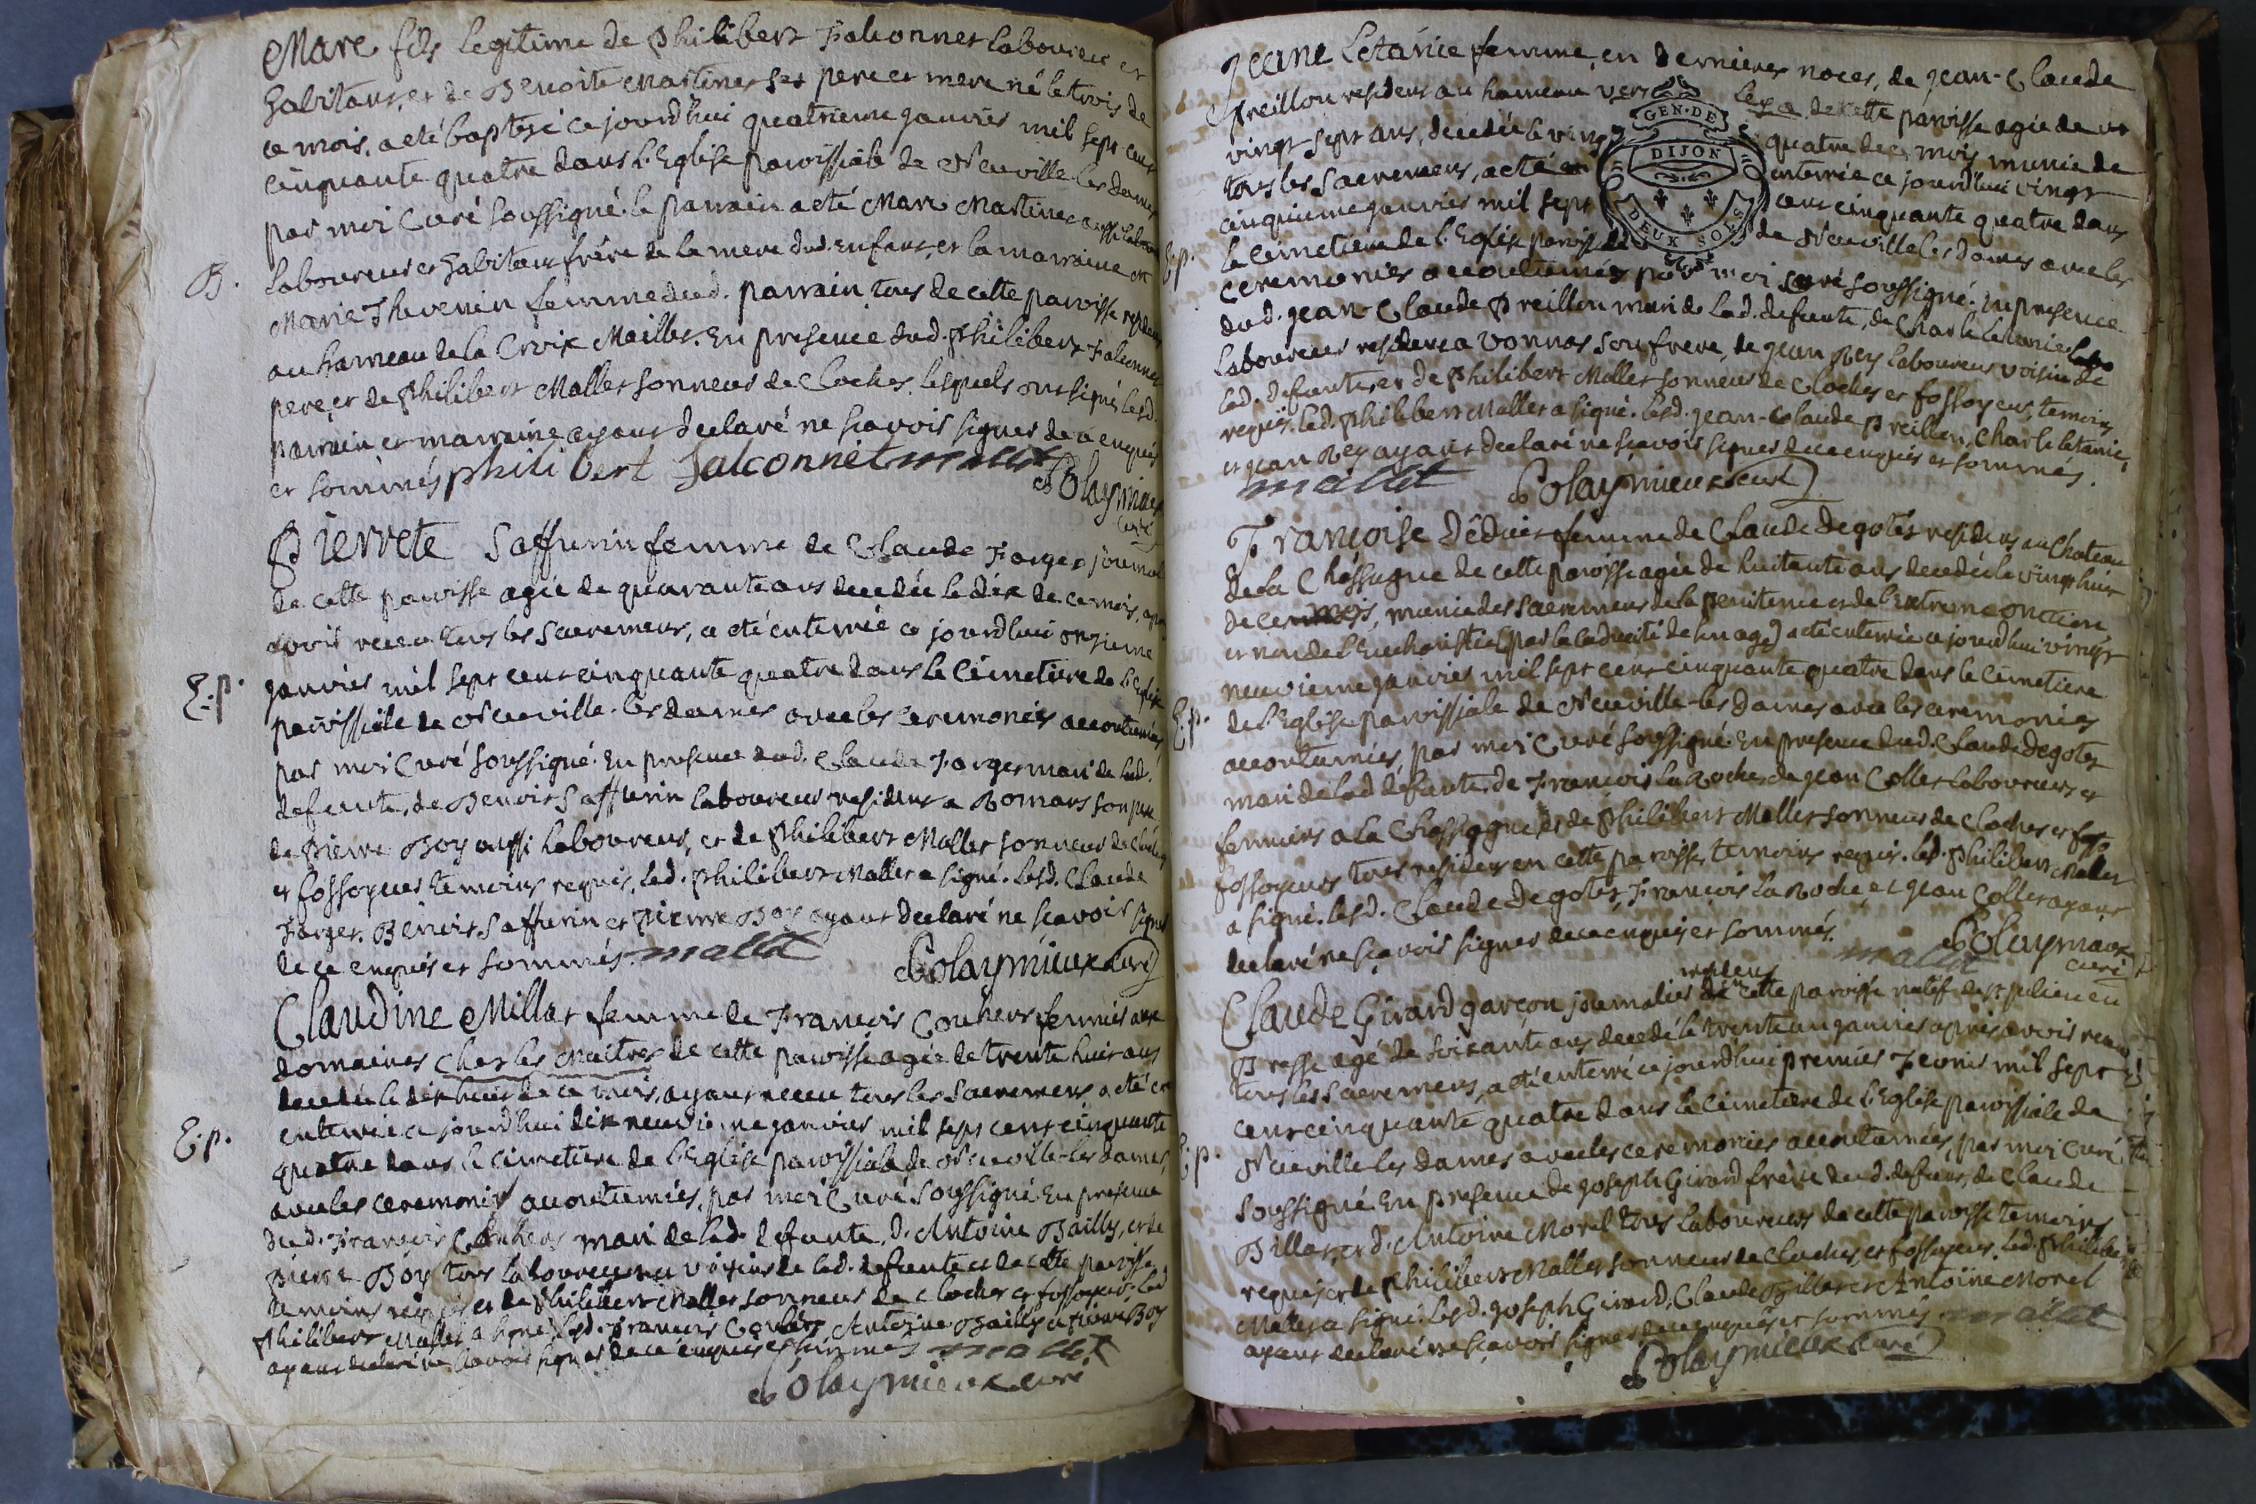 Marc fils legitime de Philibert Falconnet laboureur et
habitant, et de Benoite Martinet ses pere et mere né le trois de
ce mois, a eté baptisé ce jourd'hui quatrieme janvier mil sept cent
cinquante quatre dans l'Eglise paroissiale de Neuville les dames
par moi Curé soussigné. le parrain a eté Marc Martinet aussi
B.
laboureur et habitant frére de la mere dud. enfant, et la marraine
Marie Thevenin femme dud. parrain, tous de cette paroisse
au hameau de la Croix Maillet. En presence dud. Philibert Falconnet
pere, et de Philibert Mallet sonneur de Cloches, lesquels ont signé, lesd.
parrain et marraine ayant declaré ne scavoir signer de ce enquis
et sommés philibert falconnet mallet
Polaymieux
curé
Pierrete Saffurin femme de Claude Farget journal
de cette paroisse agée de quarante ans decedée le dix de ce mois,
avoir receu tous les sacremens, a eté enterrée ce jourd'hui onzieme
E.p.
janvier mil sept cent cinquante quatre dans le Cimetiere de l'Eglise
paroissiale de Neuville-les dames avec les ceremonies accoutumées
par moi Curé soussigné. En presence dud. Claude Farget mari de lad.
defunte, de Benoit Saffurin laboureur resident a Romans son
de Pierre Boy aussi laboureur, et de Philibert Mallet sonneur de Cloches
et fossoyeur temoins requis, led. Philibert Mallet a signé. lesd. Claude
Farget, Benoit Saffurin et Pierre Boy ayant declaré ne scavoir signer
de ce enquis et sommés. mallet
Polaymieux Curé
Claudine Millat femme de François Couhert fermier aux
domaines Chez les Maitres de cette paroisse agée de trente huit ans
decedée le dix huit de ce mois, ayant receu tous les sacremens a eté
E.p.
enterrée ce jourd'hui dix neuvieme janvier mil sept cent cinquante
quatre dans le cimetiere de l'Eglise paroissiale de Neuville-les dames
avec les ceremonies accoutumées, par moi Curé soussigné. En presence
dud. François Couhert mari de lad. defunte, d'Antoine Bailly, et de
Pierre Boy tous laboureurs voisins de lad. defunte et de cette paroisse
temoins requis et de Philibert Mallet sonneur de cloches et fossoyeur. led.
Philibert Mallet a signé, lesd. François Couhert, Antoine Bailly et Pierre Boy
ayant declaré ne scavoir signer de ce enquis et sommés mallet
Polaymieux curé
Jeane Letanie femme, en dernieres noces, de Jean-Claude
Preillon resident au hameau vers de cette paroisse agée de
vingt-sept ans, decedée le vingt quatre de ce mois munie de
GEN. DE
DIJON
DEUX SOLS
tous les sacremens, a eté enterrée ce jourd'hui vingt
cinquieme janvier mil sept cent cinquante quatre dans
E.p.
le Cimetiere de l'Eglise de Neuville les dames avec les
ceremonies accoutumées par moi curé soussigné. En presence
dud. Jean-Claude Preillon mari de lad. defunte, de Charle Letanie
laboureur resident a Vonnas son frere, de Jean Rey laboureur voisin de
lad. defunte, et de Philibert Mallet sonneur de Cloches et fossoyeur, temoins
requis. led. Philibert Mallet a signé. lesd. Jean-Claude Preillon, Charle Letanie,
et Jean Rey ayant declaré ne sçavoir signer de ce enquis et sommés.
mallet Polaymieux curé
Françoise femme de Claude Degotet resident au Chateau
de la Chassagne de cette paroisse agée de huitante ans decedée le vingt huit
de ce mois, munie des sacremens de la penitence et de l'Extreme onction
et non de l'Eucharistie (par la caducité de son age) a eté enterrée ce jourd'hui vingt
neuvieme janvier mil sept cent cinquante quatre dans le cimetiere
E.p.
de l'Eglise paroissiale de Neuville-les dames avec les ceremonies
accoutumées, par moi Curé soussigné. En presence dud. Claude Degotet
mari de lad. defunte, de François La Roche, de Jean Collet laboureurs et
fermiers a la Chassagne, et de Philibert Mallet sonneur de Cloches et
fossoyeur, tous residens en cette paroisse, temoins requis. led. Philibert Mallet
a signé. lesd. Claude Degotet, François La Roche, et Jean Collet ayant
declaré ne sçavoir signer de ce enquis et sommés.
mallet Polaymieux
curé
resident
Claude Girard garçon journalier en cette paroisse natif de St julien en
Bresse agé de soixante ans decedé le trente un janvier apres avoir receu
tous les sacremens, a eté enterré ce jourd'hui premier Fevrier mil sept
cent cinquante quatre dans le Cimetiere de l'Eglise paroissiale de
E.p.
Neuville-les dames avec les ceremonies accoutumées, par moi Curé
soussigné. En presence de Joseph Girard frére dud. defunt, de Claude
Billat, et d'Antoine Morel tous laboureurs de cette paroisse temoins
requis, et de Philibert Mallet sonneur de Cloches, et fossoyeur. led. Philibert
Mallet a signé. lesd. Joseph Girard, Claude Billat et Antoine Morel
ayant declaré ne sçavoir signer de ce enquis et sommés mallet
Polaymieux curé